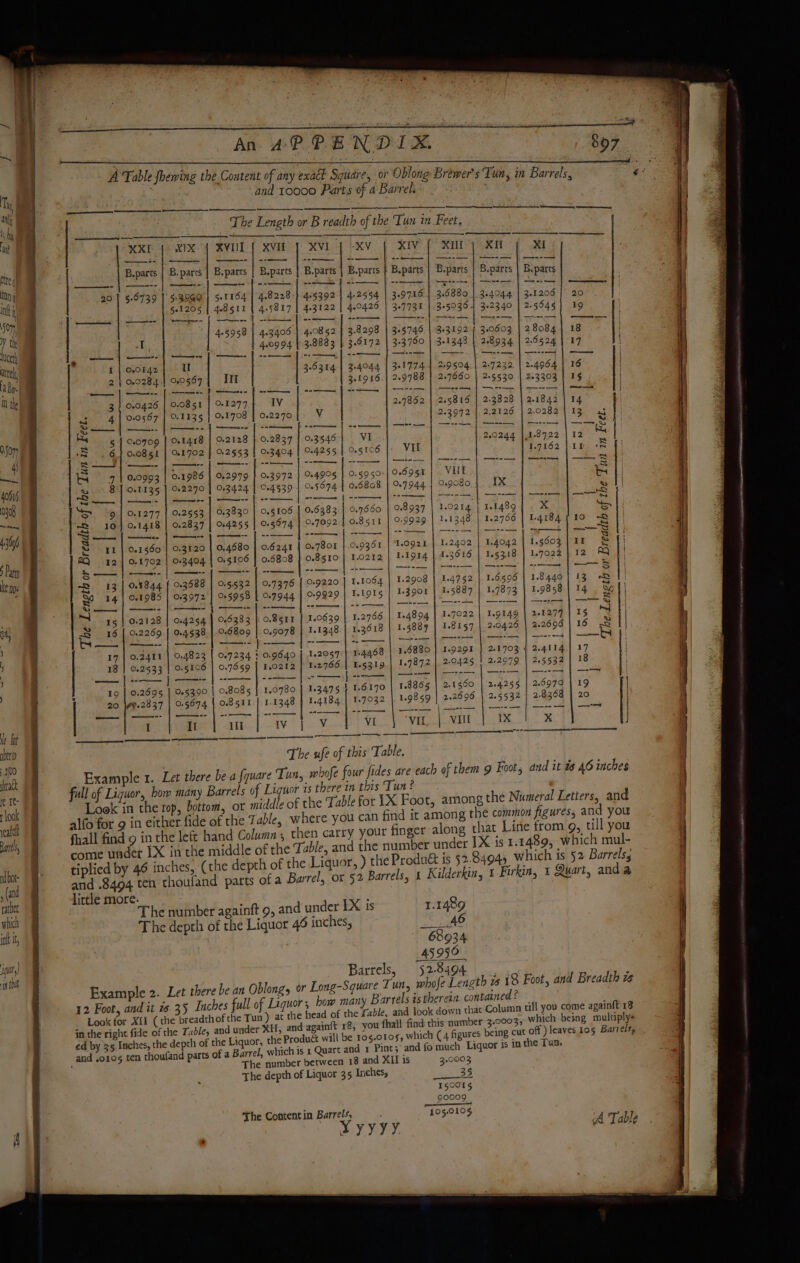 An APPENDIX. 897
A Table ſhewing the Content of any exact Square, or Oblong Brewer's Tun, in Barrels,
and 10000 Parts of a Barrel.
The Length or Breadth of the Tun in Feet.
XXI XIX XVIII XVII XVI XV XIV XIII XII XI
B.parts B.parts B.parts B.parts B.parts B.parts B.parts B.parts B.parts B.parts
20 5.6739 4.8228 4.5392 4.2554 3.9716 3.6880 3.4044 3.1206 20
5.1205 4.8511 4.5817 4.3122 4.0426 3.7731 3.2340 19
4.5958 4.3406 4.0852 3.8298 3.5746 3.3192 3.0603 2.8084 18
I 4.0994 3.8883 3.6172 3.3760 3.1348 2.8934 2.6524 17
1 0.0142 II 3.6314 3.4044 3.1774 2.9504 2.7232 2.4964 16
2 0.0284 0.0567 III 3.1916 2.9788 2.7660 2.5530 2.3303 15
3 0.0426 0.0851 0.1277 IV 2.7862 2.5816 2.3828 2.1842 14
4 0.0567 0.1135 0.1708 0.2270 V 2.3972 2.2126 2.0282 13
5 0.0709 0.1418 0.2128 0.2837 0.3546 VI 2.0244 1.8722 12
6 0.0851 0.1702 0.2553 0.3404 0.4255 0.5106 VII 1.7162 11
7 0.0993 0.1986 0.2979 0.3972 0.4905 0.5950 0.6951 VIII
8 0.1135 0.2270 0.3424 0.4539 0.5674 0.6808 0.7944 0.9080 IX
9 0.1277 0.2553 0.3830 0.5106 0.6383 0.7660 0.8937 1.0214 1.1489 X
10 0.1418 0.2837 0.4255 0.5674 0.7092 0.8511 0.9929 1.1348 1.2766 1.4184 10
11 0.1560 0.3120 0.4680 0.6241 0.7801 0.9361 1.0921 1.2492 1.4042 1.5603 11
12 0.1702 0.3404 0.5106 0.6808 0.8510 1.0212 1.1914 1.3616 1.5318 1.7022 12
13 0.1844 0.3688 0.5532 0.7376 0.9220 1.1064 1.2908 1.4752 1.6596 1.8440 13
14 0.1986 0.3972 0.5958 0.7944 0.9929 1.1915 1.3901 1.5887 1.7873 1.9858 14
15 0.2128 0.4254 0.6383 0.8511 1.0639 1.2766 1.4894 1.7022 1.9149 2.1277 15
16 0.2269 0.4538 0.6809 0.9078 1.1348 1.3618 1.5887 1.8157 2.0426 2.2696 16
17 0.2411 0.4823 0.7234 0.9640 1.2057 1.4468 1.6880 1.9291 2.1703 2.4114 17
18 0.2533 0.5106 0.7659 1.0212 1.2766 1.5319 1.7872 2.0425 2.2979 2.5532 18
19 0.2695 0.5390 0.8085 1.0780 1.3475 1.6170 1.8865 2.1560 2.4255 2.6970 19
20 0.2837 0.5674 0.8511 1.1348 1.4184 1.7032 1.9859 2.2696 2.5532 2.8368 20
I II III IV V VI VII VIII IX X
The Length or Breadth of the Tun in Feet.
The Length or Breadth of the Tun in Feet.
The uſe of this Table.
Example 1. Let there be a ſquare Tun, whoſe four ſides are each of them 9 Foot, and it is 46 inches
full of Liquor, how many Barrels of Liquor is there in this Tun?
Look in the top, bottom, or middle of the Table for IX Foot, among the Numeral Letters, and
alſo for 9 in either ſide of the Table, where you can find it among the common figures, and you
ſhall find 9 in the left hand Column; then carry your finger along that Line from 9, till you
come under IX in the middle of the Table, and the number under IX is 1.1489, which mul-
tiplied by 46 inches, (the depth of the Liquor,) the Product is 52.8494, which is 52 Barrels,
and .8494 ten thouſand parts of a Barrel, or 52 Barrels, 1 Kilderkin, 1 Firkin, 1 Quart, and a
little more.
The number againſt 9, and under IX is 1.1489
The depth of the Liquor 46 inches, 46
68934
45956
Barrels, 52.8494
Example 2. Let there be an Oblong, or Long-Square Tun, whoſe Length is 18 Foot, and Breadth is
12 Foot, and it is 35 Inches full of Liquor, how many Barrels is therein contained?
Look for XII (the breadth of the Tun) at the head of the Table, and look down that Column till you come againſt 18
in the right ſide of the Table, and under XII, and againſt 18, you ſhall find this number 3.0003, which being multiply-
ed by 35 Inches, the depth of the Liquor, the Product will be 105.0105, which (4 figures being cut off) leaves 105 Barrels,
and .0105 ten thouſand parts of a Barrel, which is 1 Quart and 1 Pint; and ſo much Liquor is in the Tun.
The number between 18 and XII is 3.0003
The depth of Liquor 35 Inches, 35
150015
90009
The Content in Barrels, 105.0105
Y yyyy A Table